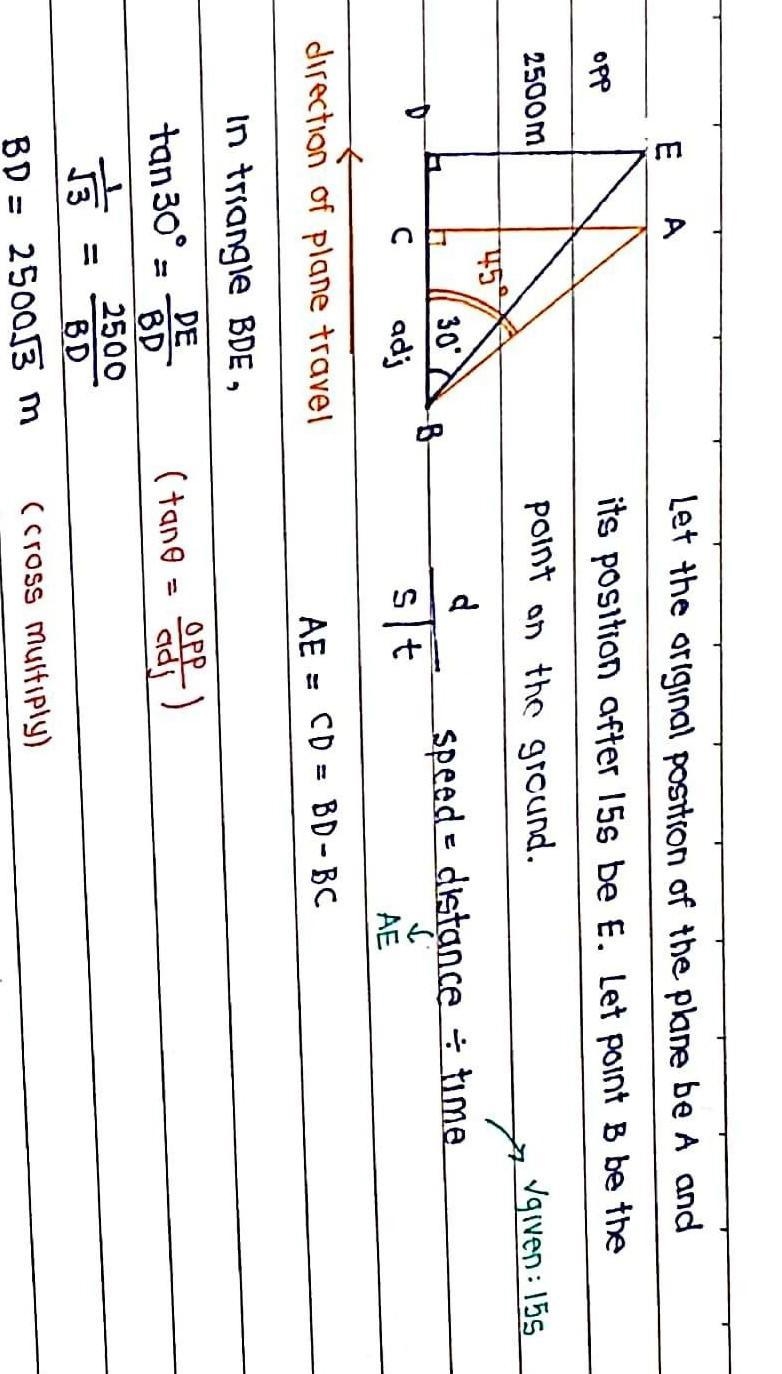 Let the original position of the plane be A and
its position after 15s be E. Let point B be the
point on the ground.
E A
opp
2500m
45°
30°
D C adj B
d
s | t
speed = distance ÷ time
AE
√given: 15s
direction of plane travel
AE = CD = BD - BC
In triangle BDE,
tan 30° = DE/BD (tanθ = opp/adj)
1/√3 = 2500/BD
BD = 2500√3 m (cross multiply)